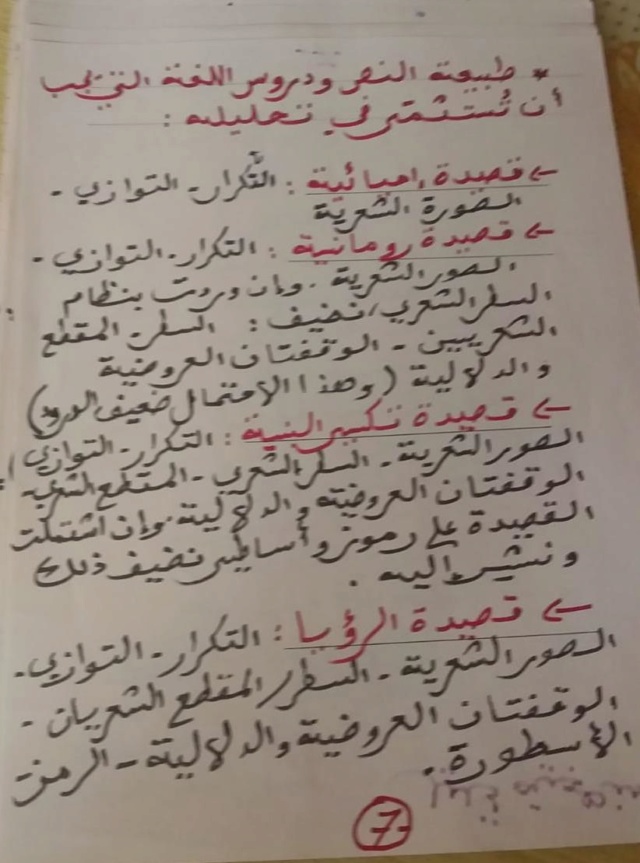 * طبيعة النص ودروس اللغة التي يجب
أن تُستثمر في تحليله :
← قصيدة إحيائية : التَّكرار - التوازي -
الصورة الشعرية
← قصيدة رومانية : التكرار - التوازي -
الصور الشعرية . وإن وردت بنظام
السطر الشعري، نضيف : السطر - المقطع
الشعريين - الوقفتان العروضية
والدلالية ( وهذا الاحتمال ضعيف الورود)
← قصيدة تكسير البنية : التكرار - التوازي
الصور الشعرية - السطر الشعري - المقطع الشعري -
الوقفتان العروضية والدلالية . وإن اشتملت
القصيدة على رموز وأساطير نضيف ذلك
ونشير إليه .
← قصيدة الرؤيا : التكرار - التوازي -
الصور الشعرية - السطر/ المقطع الشعريان -
الوقفتان العروضية والدلالية - الرمز
الأسطورة .
7